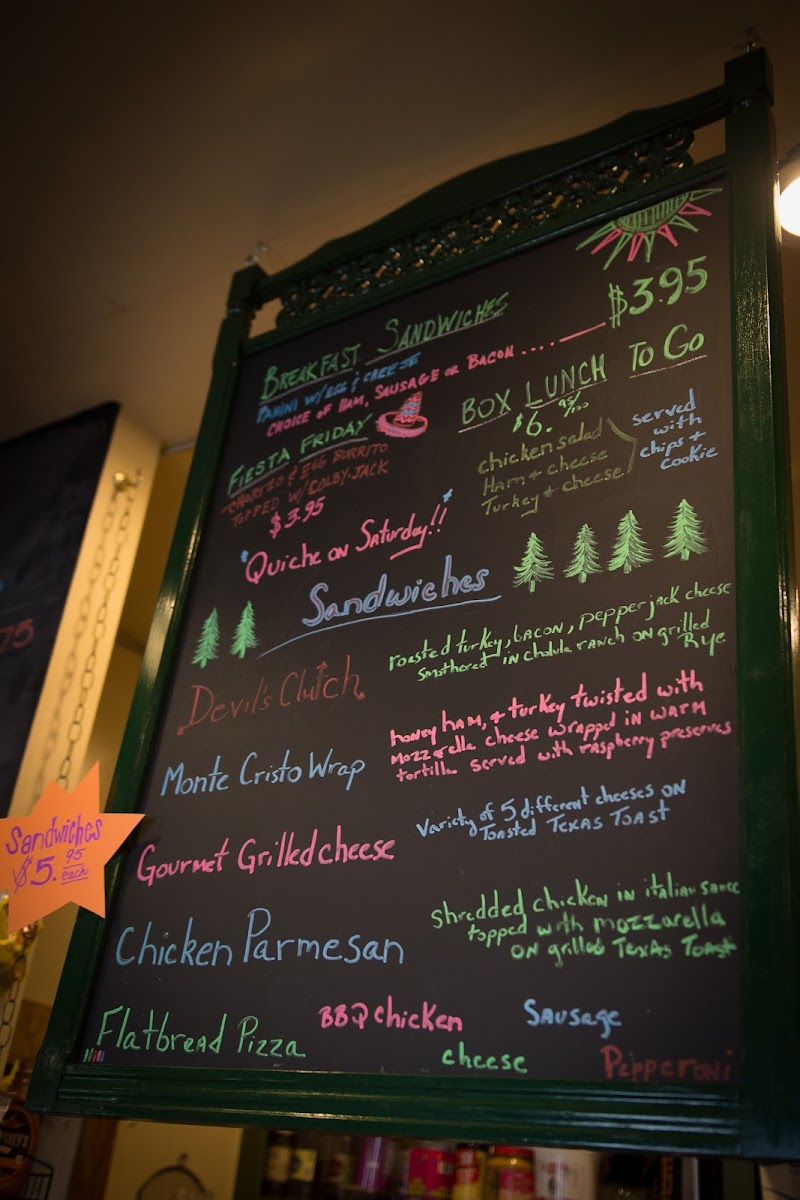 BREAKFAST SANDWICHES
PANINI W/EGG & CHEESE
CHOICE OF HAM, SAUSAGE OR BACON ....
$3.95
FIESTA FRIDAY
CHORIZO & EGG BURRITO
TOPPED W/COLBY-JACK
$3.95
BOX LUNCH TO GO
$6. 95/100
chicken salad
Ham + cheese
Turkey + cheese
served
with
chips +
cookie
"Quiche on Saturday!!"
Sandwiches
Devil's Clutch
roasted turkey, bacon, pepperjack cheese
smothered in cholula ranch on grilled
Rye
Monte Cristo Wrap
honey ham, + turkey twisted with
mozzarella cheese wrapped in warm
tortilla served with raspberry preserves
Gourmet Grilled cheese
Variety of 5 different cheeses on
Toasted Texas Toast
Chicken Parmesan
shredded chicken in italian sauce
topped with mozzarella
on grilled Texas Toast
Flatbread Pizza
BBQ chicken
Sausage
cheese
Pepperoni
Sandwiches
$5. 95
each
75